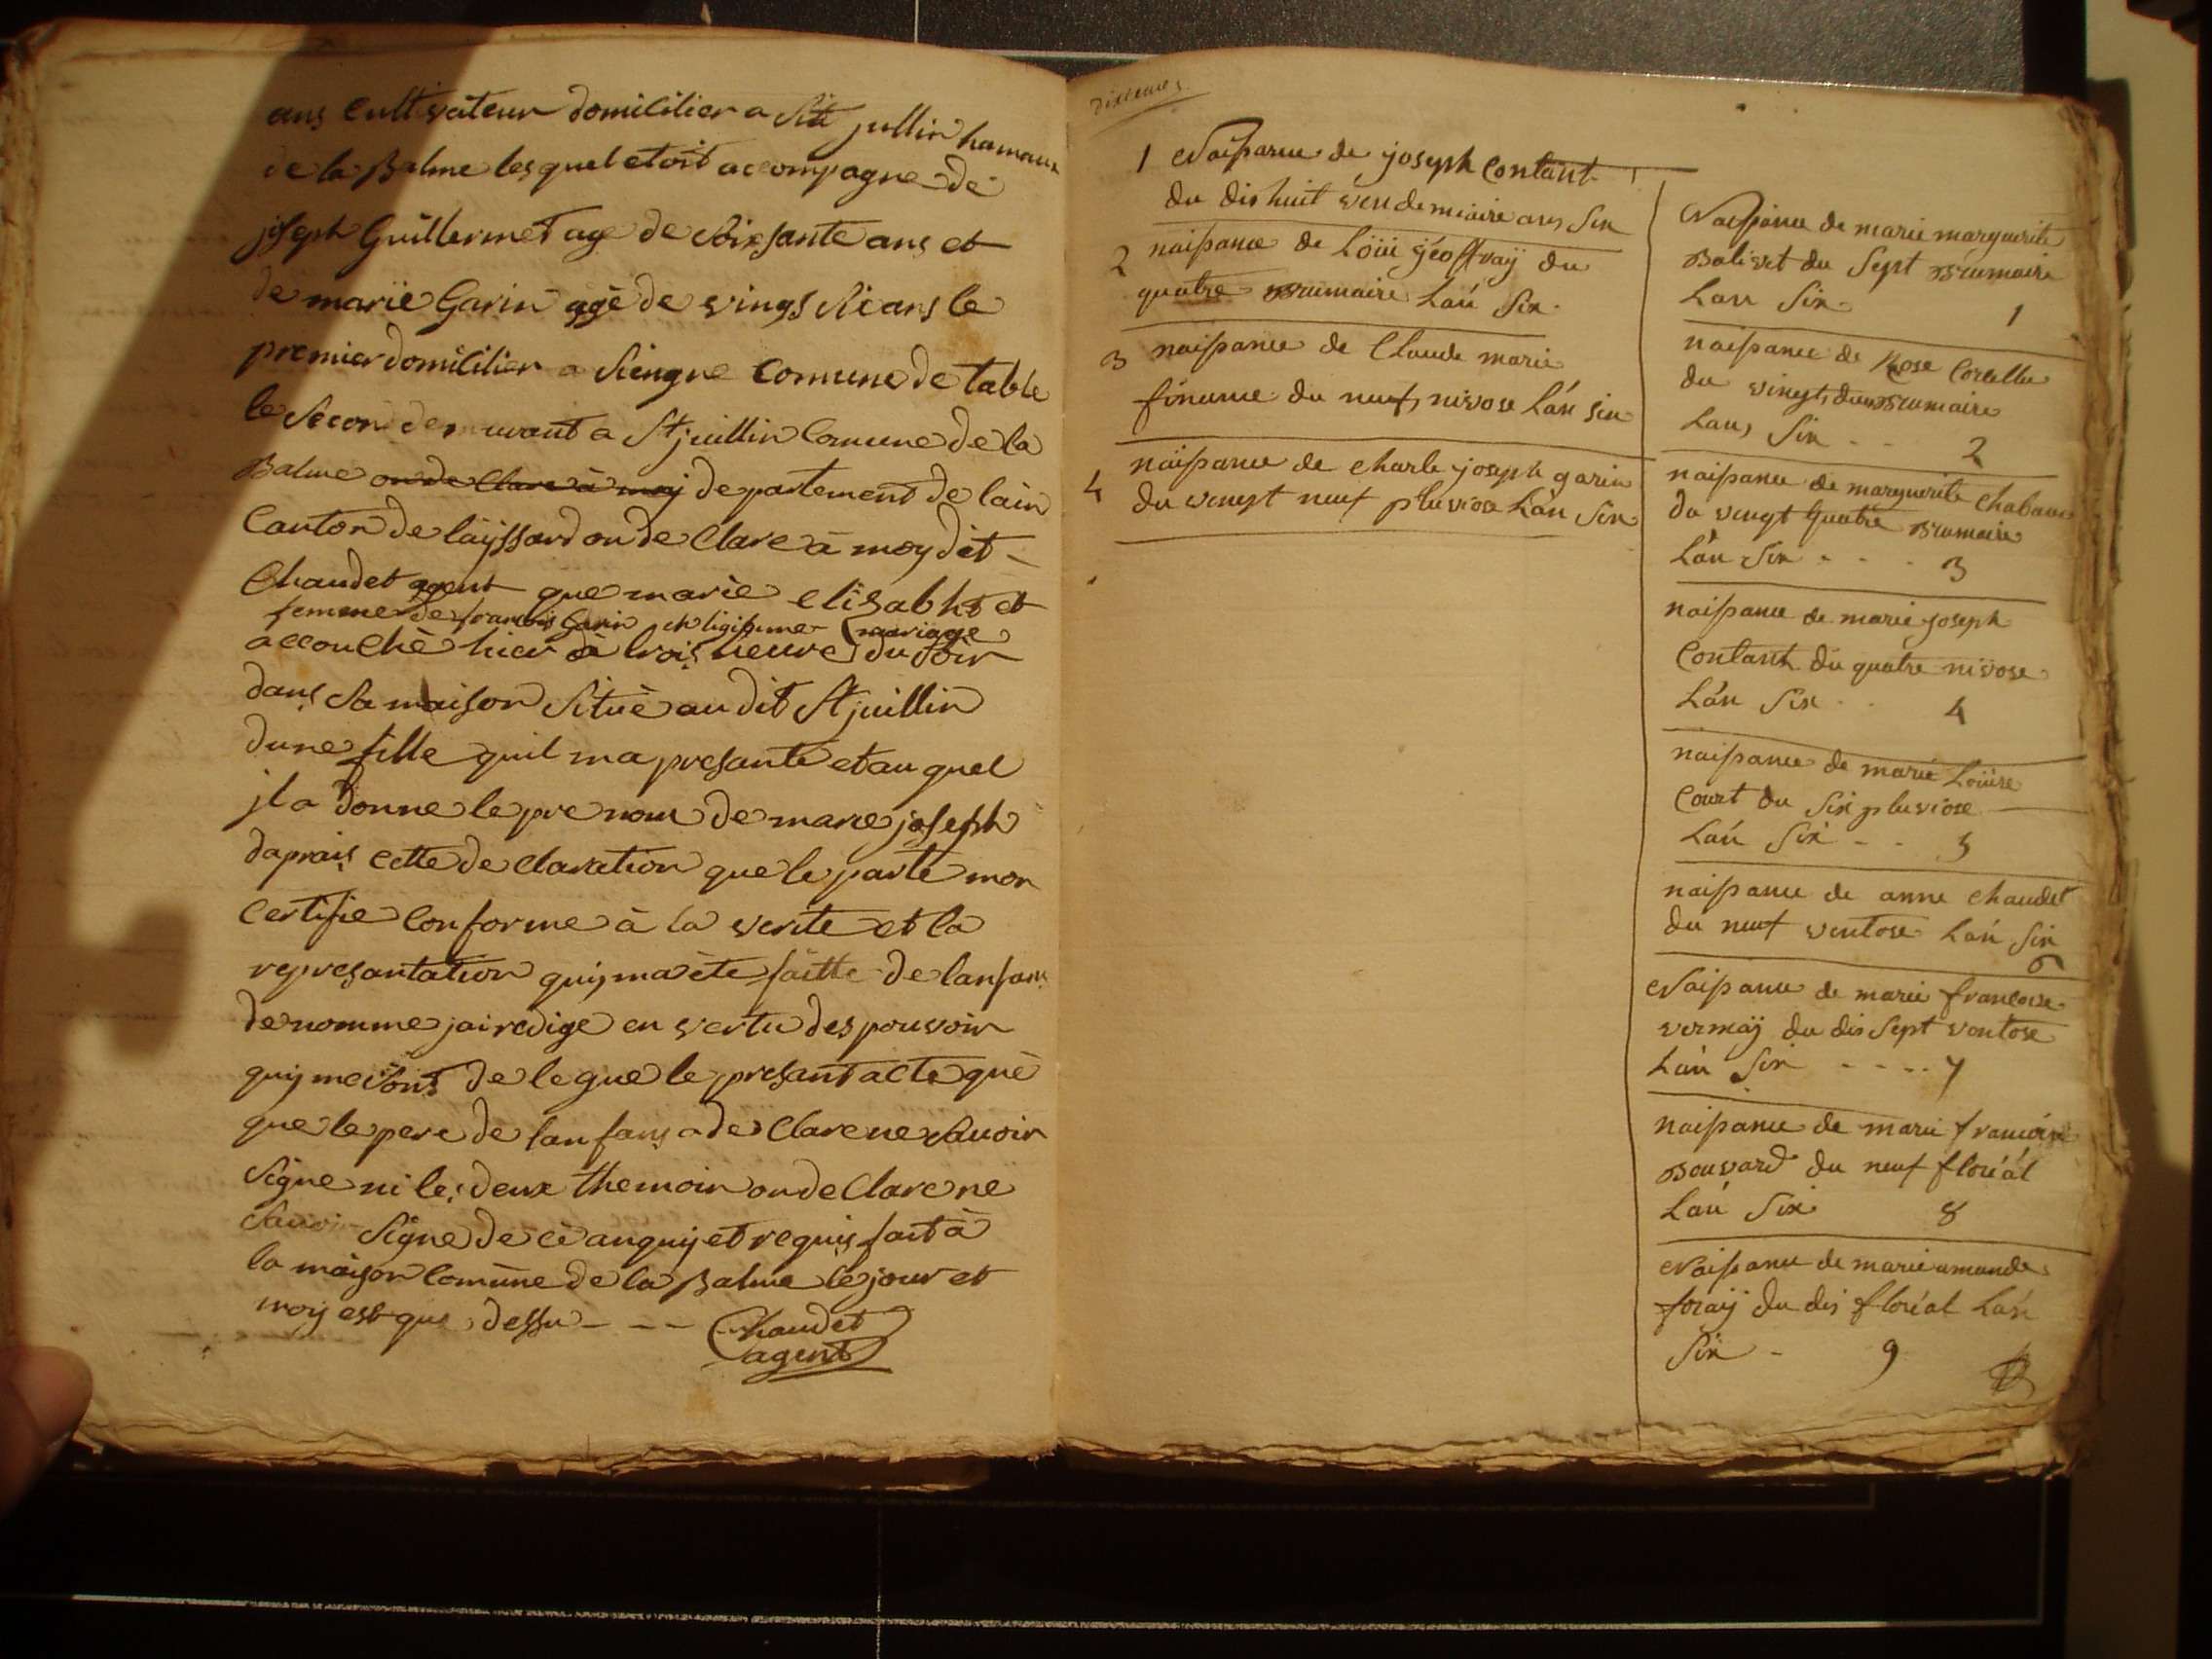 ans cultivateur domicilier a St jullin hamaux
de la Balme lesquel etoit accompagne de
joseph Guillermet age de soixsante ans et
de marie Garin agè de vings sis ans le
premier domicilier a comune de table
le second demeurant a St juillin comune de la
Balme on de clare à moy departement de lain
canton de on de clare à moy dit
chaudet agent que marie elisabht et
femme de francois Garin en ligitime mariage
accouchè hier à trois heure du soir
dans sa maison situè au dit St juillin
dune fille quil ma presante et au quel
jl a donne le pre nom de marie joseph
daprais cette de claration que le parte mon
certifie conforme à la verite et la
represantation quij ma ète faitte de lanfans
denomme jai redige en vertu des pouvoir
quij me sont de legue le presant acte què
que le pere de lanfans a de clare ne savoir
signe ni les deux themoin on de clare ne
savoir signe de cè anquij et requis fait à
la maison comune de la Balme le jour et
moij est que dessu - - - Chaudet
agent
1 Naissance de joseph Contant
du dis huit vendemiaire ans six
2 naissance de Loüi géoffraÿ du
quatre Brumaire Lan six
3 naissance de Claude marie
du neuf nivose Lan six
4 naissance de charle joseph garin
du vingt neuf pluviose Lan six
Naissance de marie marguerite
Balivet du sept Brumaire
Lan six 1
naissance de Rose
du vingt deux Brumaire
Lan six - - 2
naissance de marguerite
du vingt quatre Brumaire
Lan six - - - 3
naissance de marie joseph
Contant du quatre nivose
Lan six - - 4
naissance de marie Loüise
Court du six pluviose
Lan six - - 5
naissance de anne chaudet
du neuf ventose Lan six
6
Naissance de marie francoise
vermaÿ du dis sept ventose
Lan six - - - - 7
naissance de marie francoise
Bouvard du neuf floréal
Lan six 8
Naissance de marie amande
foraÿ du dis floréal Lan
six - 9